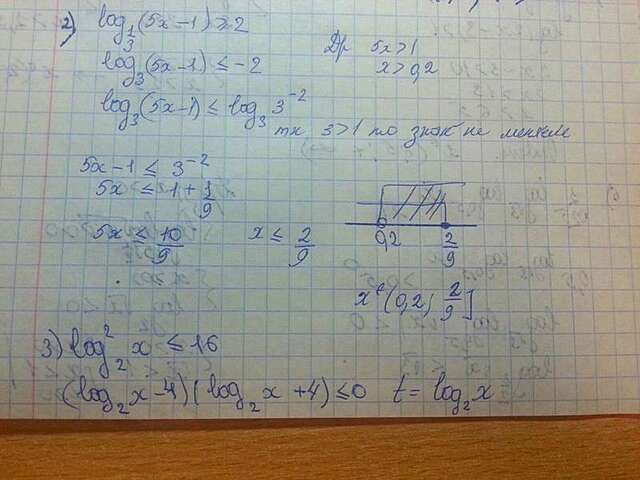 2) log_{1/3}(5x-1) ≥ 2
Др 5x>1
x>0,2
log₃(5x-1) ≤ -2
log₃(5x-1) ≤ log₃ 3⁻²
тк 3>1 то знак не меняем
5x-1 ≤ 3⁻²
5x ≤ 1 + 1/9
5x ≤ 10/9
x ≤ 2/9
0,2 2/9
x ∈ (0,2; 2/9]
3) log²₂ x ≤ 16
(log₂x-4)(log₂x+4) ≤ 0 t = log₂x